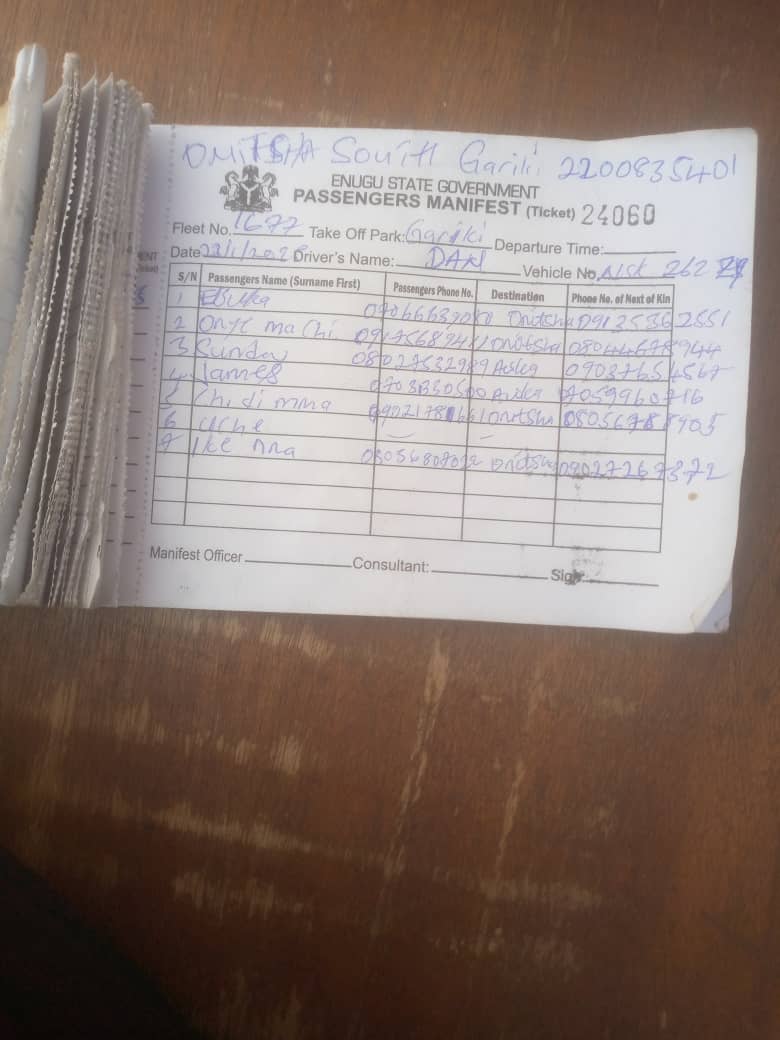 ONITSHA South Gariki 2200835401
ENUGU STATE GOVERNMENT
PASSENGERS MANIFEST (Ticket) 24060
Fleet No. 1677 Take Off Park: Gariki Departure Time:
Date Driver's Name: DAN Vehicle No. NSK 262
S/N Passengers Name (Surname First) Passengers Phone No. Destination Phone No. of Next of Kin
1 Ebuka Onitsha 09135362551
2 Onyi ma chi Onitsha 08044678944
3 Sunday 08027532989 Awka 09037654567
4 James Awka 7059960716
5 Chi di mma Onitsha
6 Uche — —
7 Ike nna Onitsha 09027267372
Manifest Officer Consultant: Sign